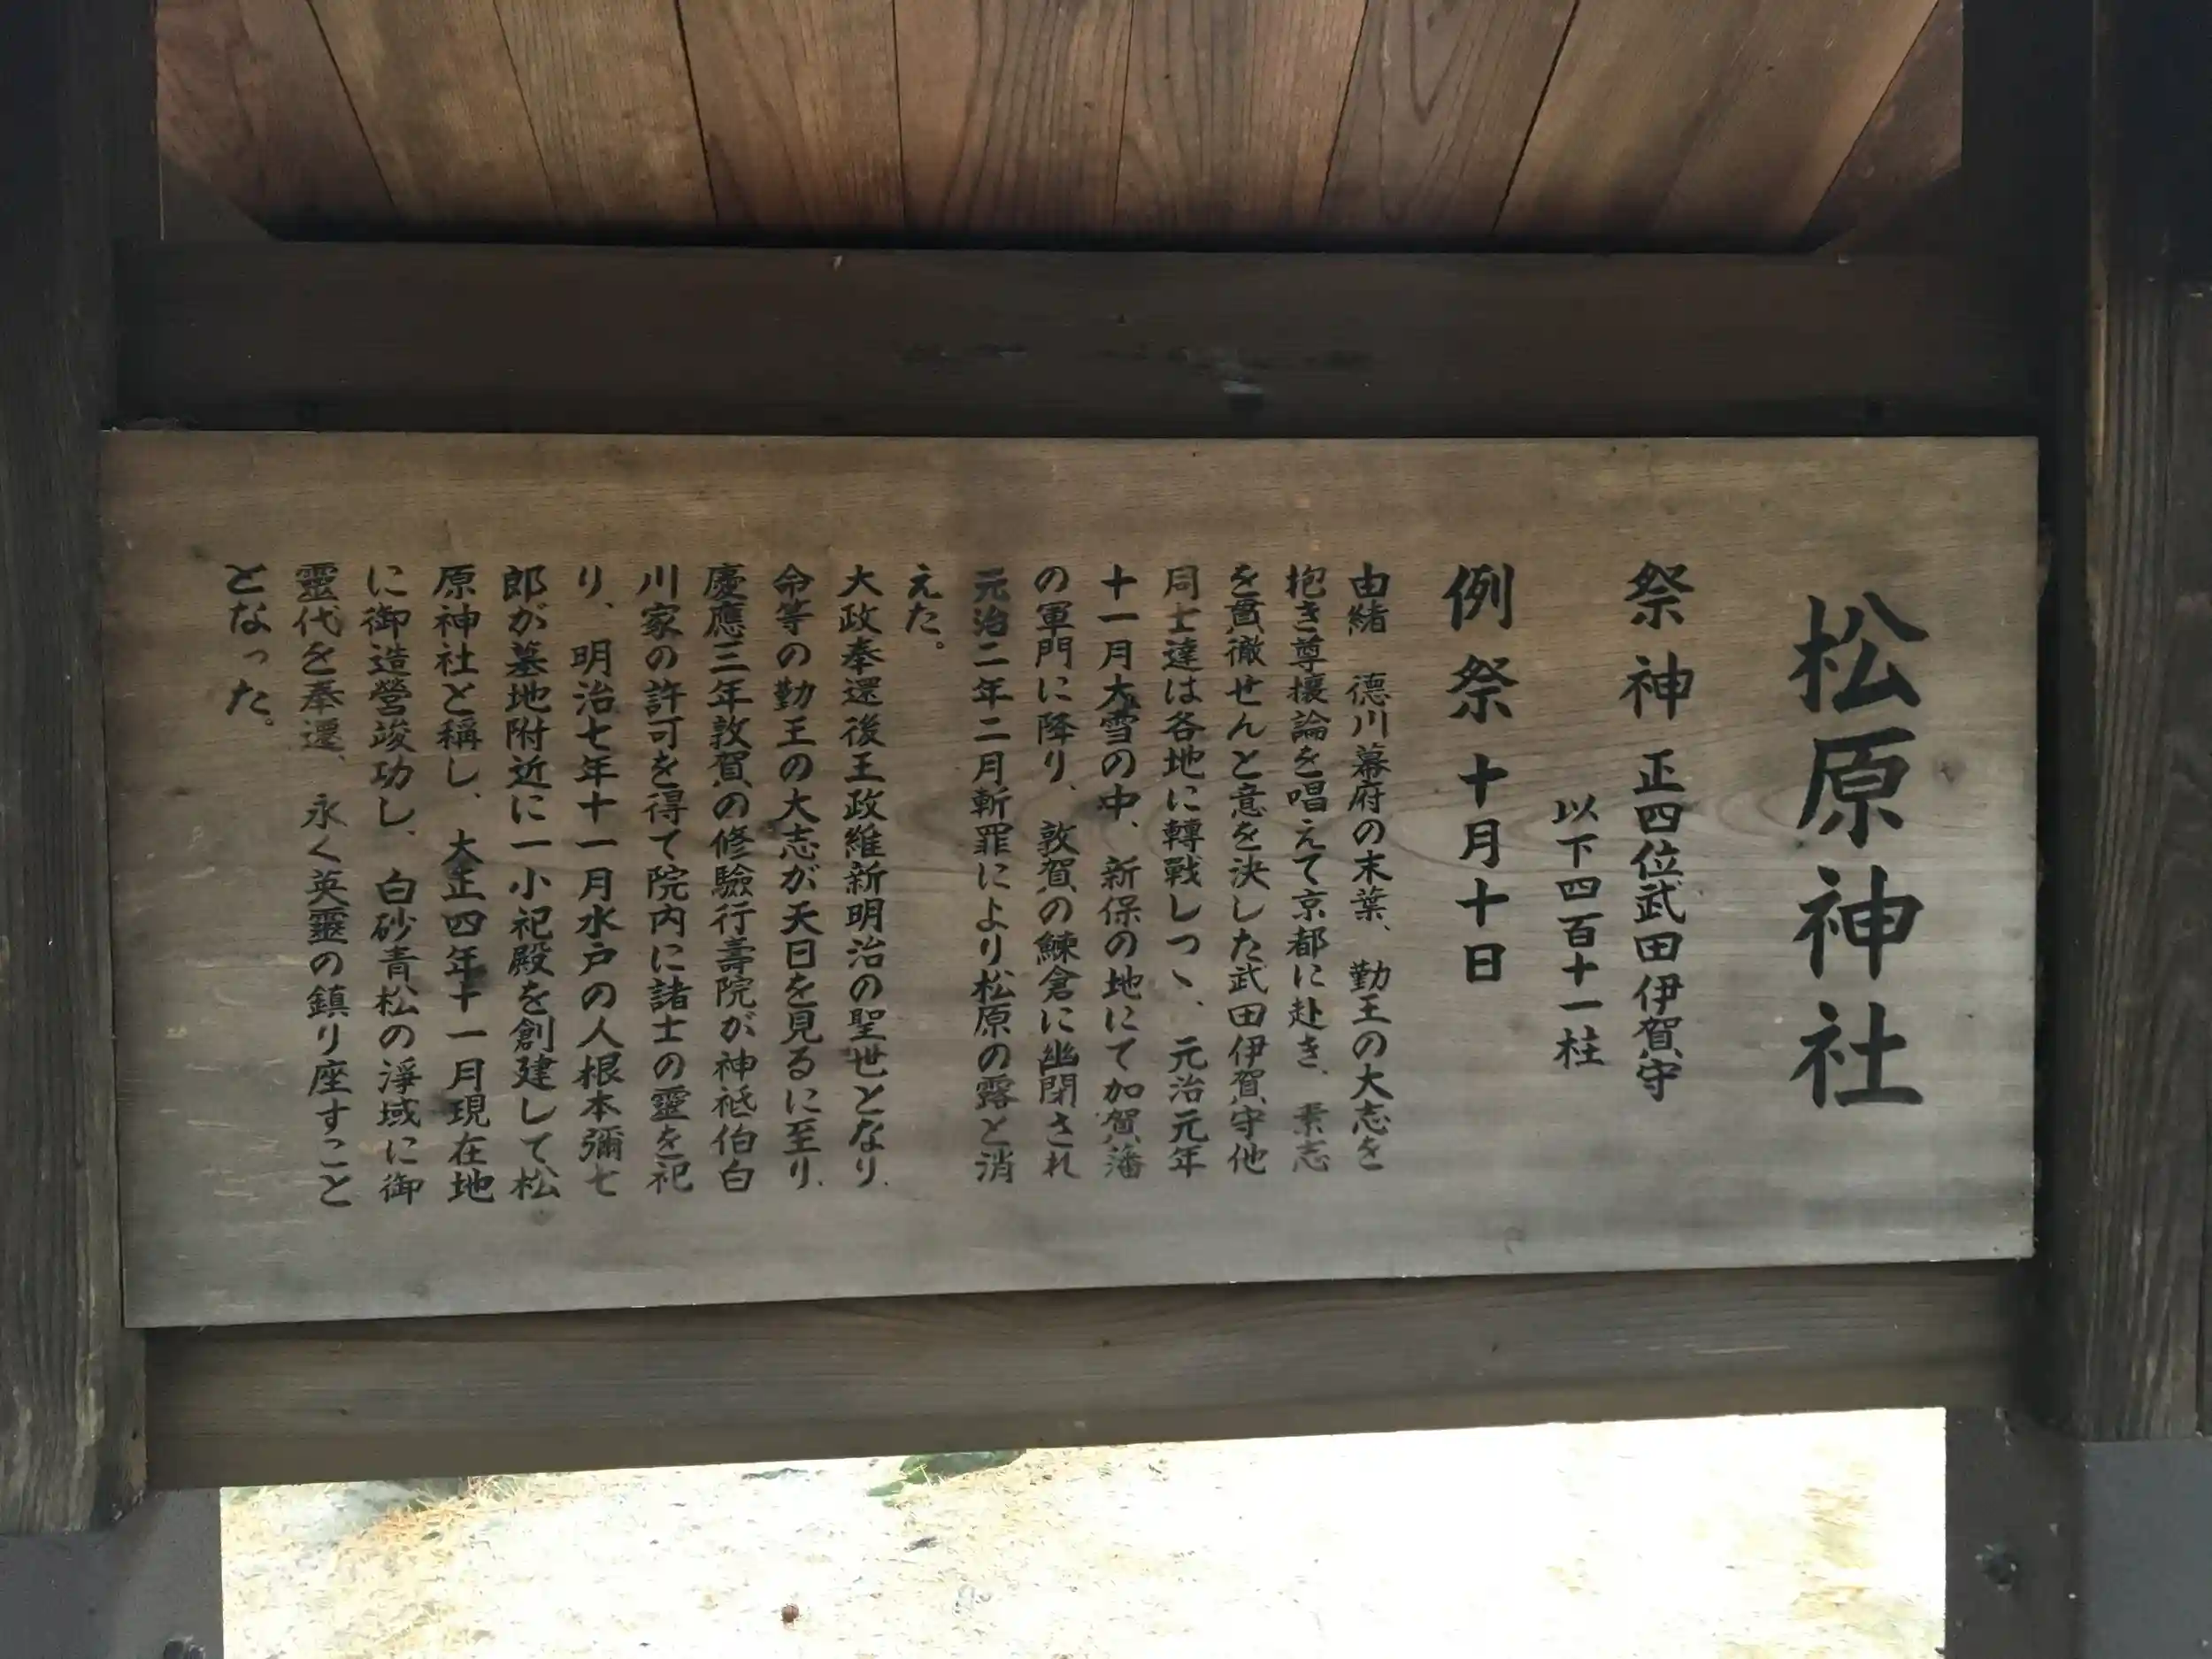 松原神社
祭神 正四位武田伊賀守
以下四百十一柱
例祭 十月十日
由緒 德川幕府の末葉、勤王の大志を
抱き尊攘論を唱えて京都に赴き、素志
を貫徹せんと意を決した武田伊賀守他
同士達は各地に轉戰しつヽ、元治元年
十一月大雪の中、新保の地にて加賀藩
の軍門に降り、敦賀の鰊倉に幽閉され
元治二年二月斬罪により松原の露と消
えた。
大政奉還後王政維新明治の聖世となり、
命等の勤王の大志が天日を見るに至り、
慶應三年敦賀の修驗行壽院が神祗伯白
川家の許可を得て院内に諸士の靈を祀
り、明治七年十一月水戸の人根本彌七
郎が墓地附近に一小祀殿を創建して松
原神社と稱し、大正四年十一月現在地
に御造營竣功し、白砂青松の淨域に御
靈代を奉遷、永く英靈の鎮り座すこと
となった。